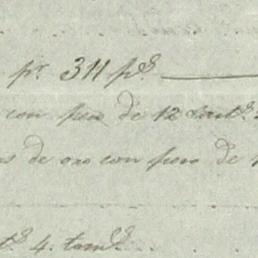 pr. 311 ps.
con peso de 12 cast.s
s de oro con peso de
t.s 4. tom.s